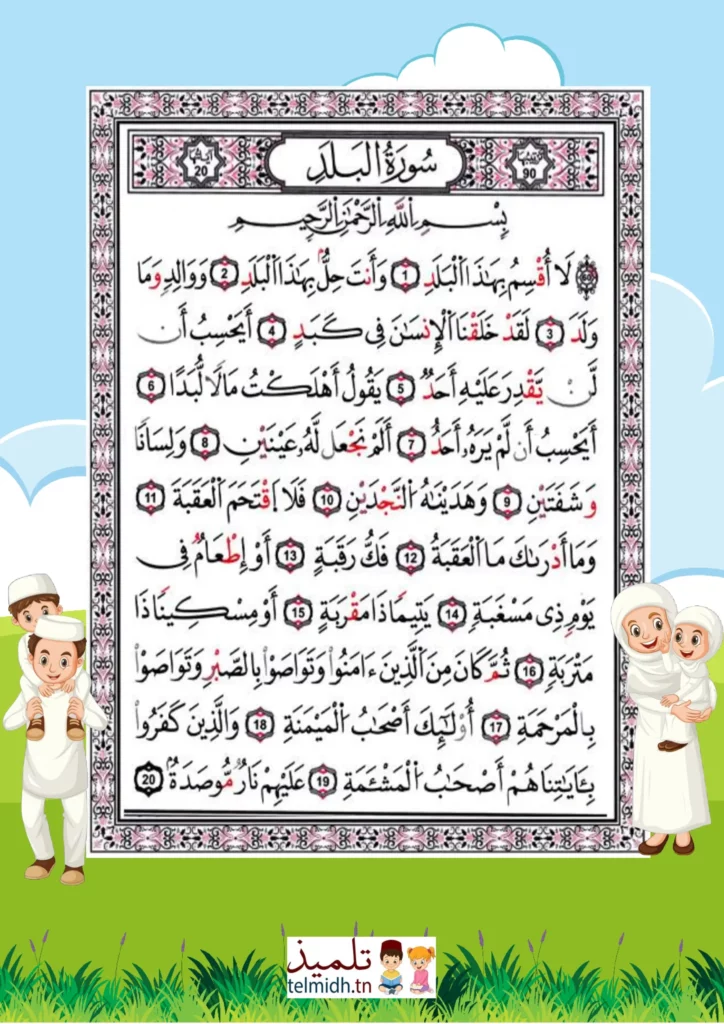 آياتها 20
سُورَةُ الْبَلَدِ
ترتيبها 90
بِسْمِ اِ۬للَّهِ اِ۬لرَّحْمَٰنِ اِ۬لرَّحِيمِ
لَا أُقْسِمُ بِهَٰذَا اَ۬لْبَلَدِ 1 وَأَنتَ حِلُّۢ بِهَٰذَا اَ۬لْبَلَدِ 2 وَوَالِدٍ وَمَا
وَلَدَ 3 لَقَدْ خَلَقْنَا اَ۬لْإِنسَٰنَ فِي كَبَدٍ 4 أَيَحْسِبُ أَن
لَّنْ يَّقْدِرَ عَلَيْهِ أَحَدٌ 5 يَقُولُ أَهْلَكْتُ مَالًا لُّبَدًا 6
أَيَحْسِبُ أَن لَّمْ يَرَهُۥ أَحَدٌ 7 أَلَمْ نَجْعَل لَّهُۥ عَيْنَيْنِ 8 وَلِسَانًا
وَشَفَتَيْنِ 9 وَهَدَيْنَٰهُ اُ۬لنَّجْدَيْنِ 10 فَلَا اَ۪قْتَحَمَ اَ۬لْعَقَبَةَ 11
وَمَا أَدْرَىٰكَ مَا اَ۬لْعَقَبَةُ 12 فَكُّ رَقَبَةٍ 13 أَوْ إِطْعَٰمٌ فِي
يَوْمٍ ذِي مَسْغَبَةٍ 14 يَتِيمًا ذَا مَقْرَبَةٍ 15 أَوْ مِسْكِينًا ذَا
مَتْرَبَةٍ 16 ثُمَّ كَانَ مِنَ اَ۬لَّذِينَ ءَامَنُوا۟ وَتَوَاصَوْا۟ بِالصَّبْرِ وَتَوَاصَوْا۟
بِالْمَرْحَمَةِ 17 أُو۟لَٰٓئِكَ أَصْحَٰبُ اُ۬لْمَيْمَنَةِ 18 وَالَّذِينَ كَفَرُوا۟
بِـَٔايَٰتِنَا هُمْ أَصْحَٰبُ اُ۬لْمَشْـَٔمَةِ 19 عَلَيْهِمْ نَارٌ مُّوصَدَةٌۢ 20
تلميذ
telmidh.tn